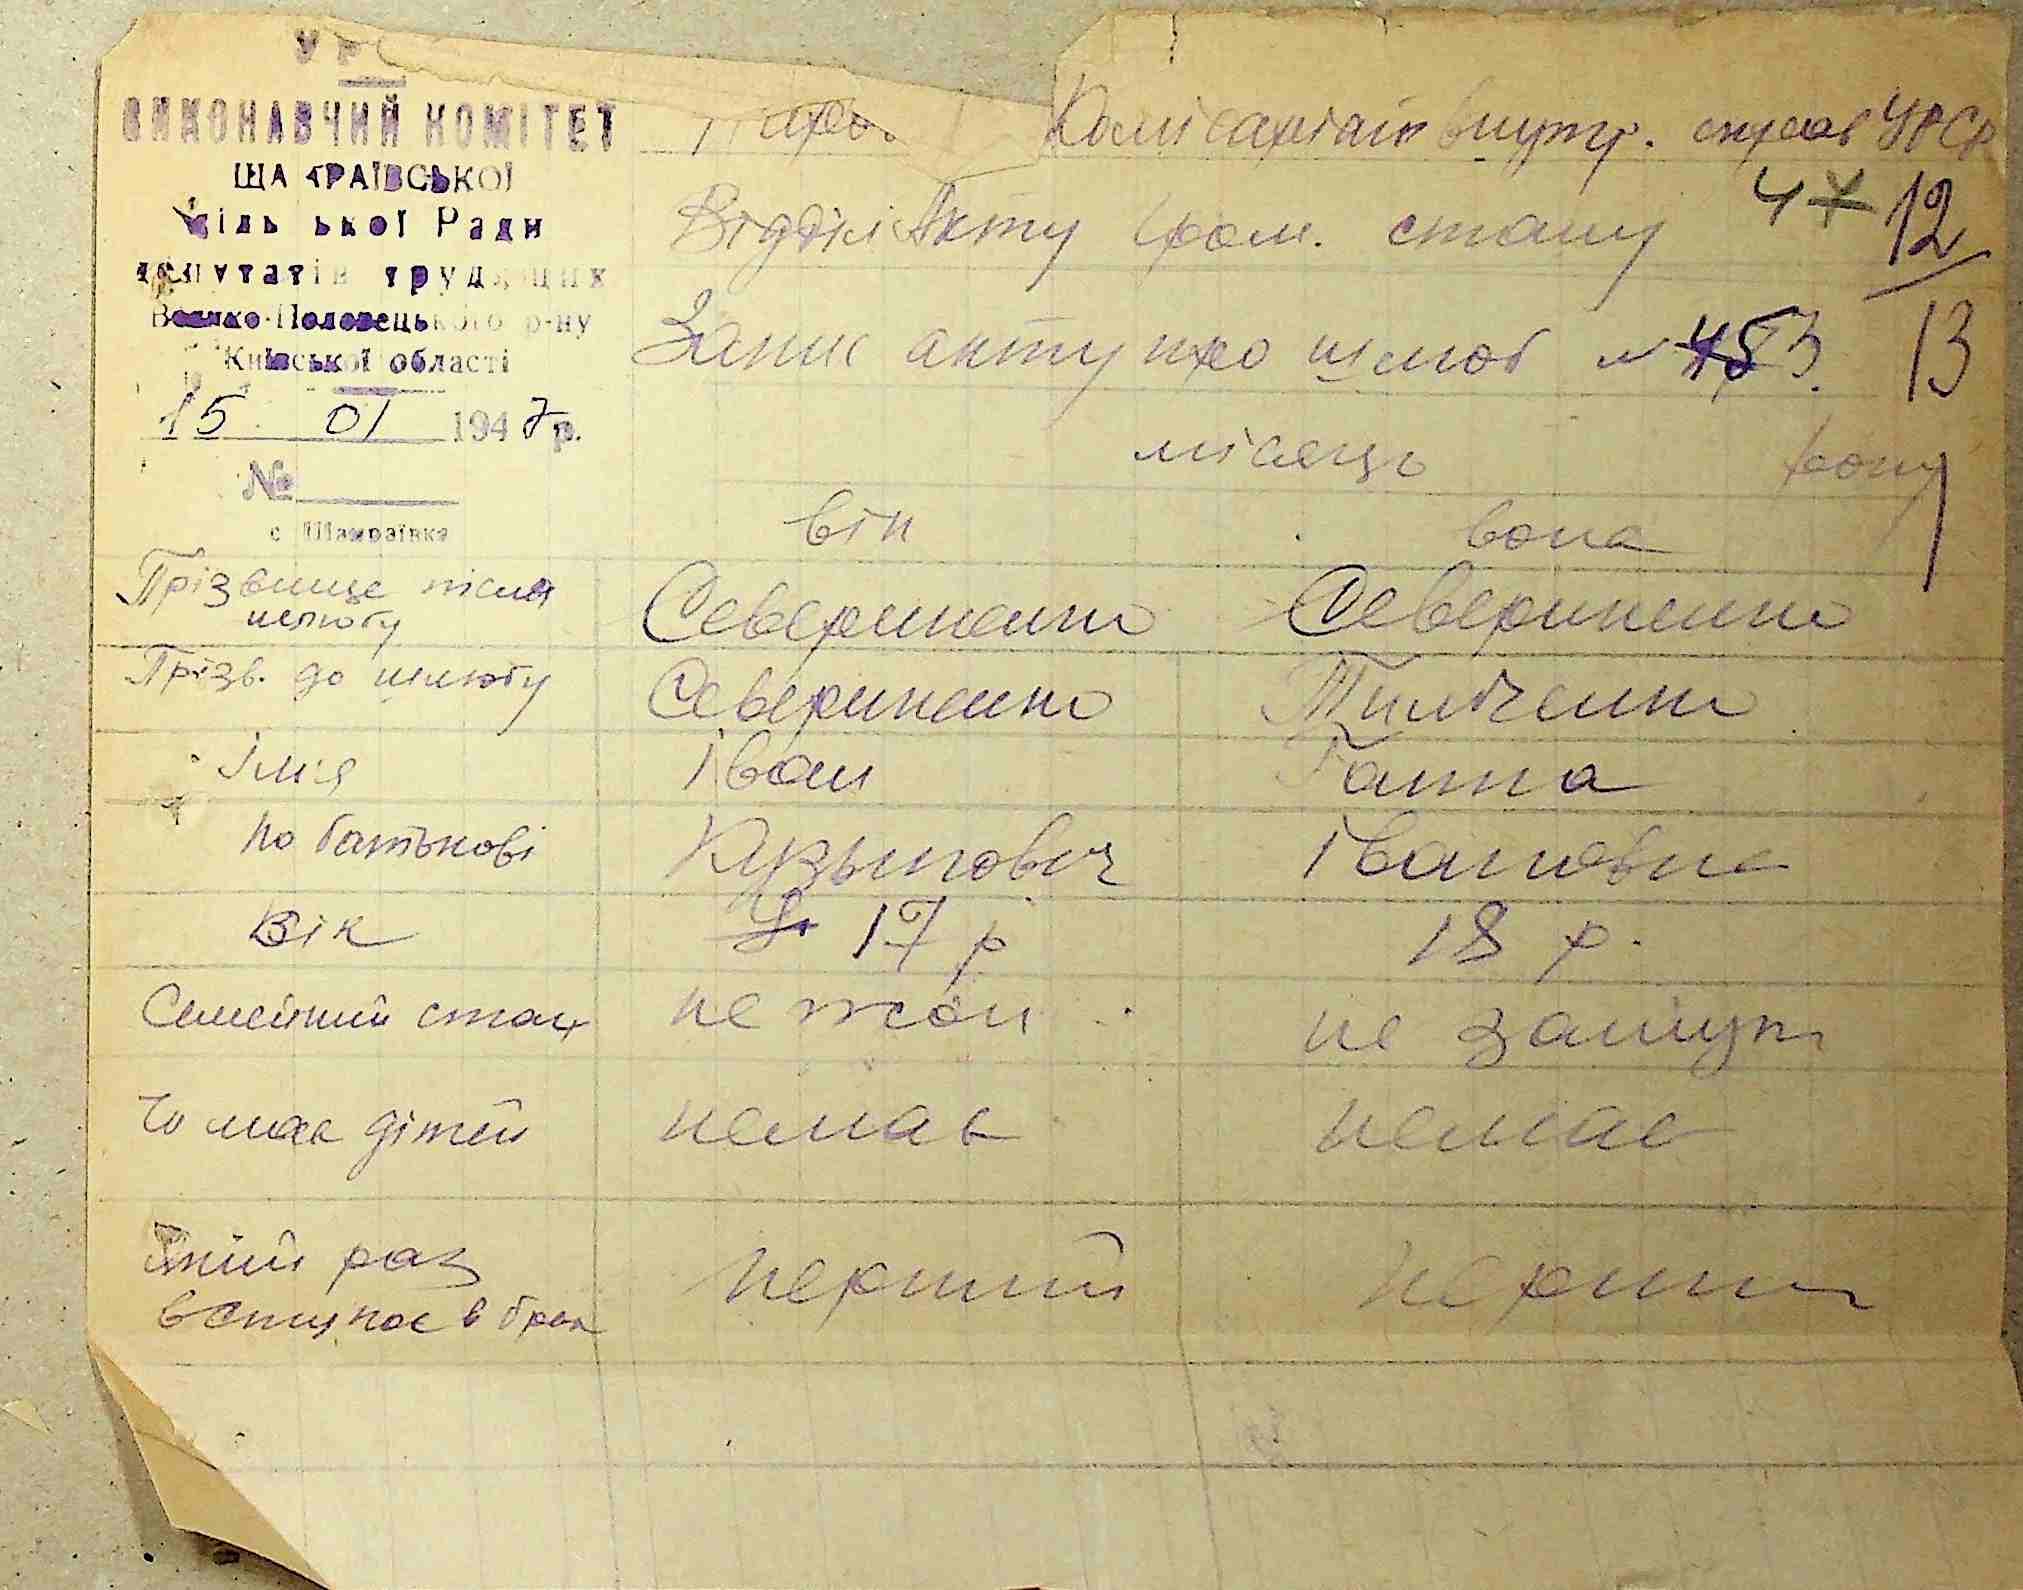 УР
ВИКОНАВЧИЙ КОМІТЕТ
ШАМРАЇВСЬКОЇ
сільської Ради
депутатів трудящих
Велико-Половецького р-ну
Київської області
15 01 1947 р.
№
с Шамраївка
Наро Комісаріат внутр. справ УРСР
Відділ Акту гром. стану 4 12
Запис акту про шлюб № 3 13
місяць року
він вона
Прізвище після шлюбу Севериненко Севериненко
Прізв. до шлюбу Севериненко
Імія Іван Ганна
по батькові Кузьмович Івановна
Вік 17 р 18 р.
Семейний стан не жон не замуж
Чи має дітей немає немає
Який раз
вступає в брак перший перший